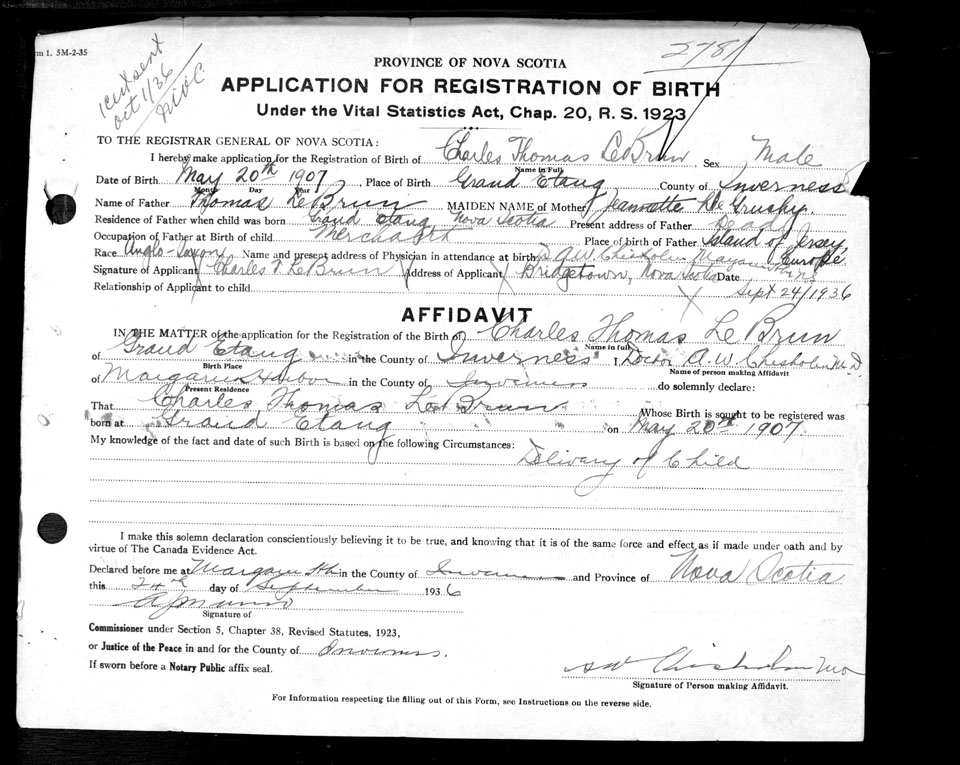 m 1. 5M-2-35
1 cert sent
Oct 1/36
2781
PROVINCE OF NOVA SCOTIA
APPLICATION FOR REGISTRATION OF BIRTH
Under the Vital Statistics Act, Chap. 20, R. S. 1923
TO THE REGISTRAR GENERAL OF NOVA SCOTIA:
I hereby make application for the Registration of Birth of Charles Thomas LeBrun, Sex Male
Name in Full
Date of Birth May 20th 1907, Place of Birth Grand Etang County of Inverness
Month Day Year
Name of Father Thomas LeBrun MAIDEN NAME of Mother Jeannette De Gruchy.
Residence of Father when child was born Grand Etang Nova Scotia Present address of Father Dead
Occupation of Father at Birth of child Merchant Place of birth of Father Island of Jersey, Europe
Race Anglo-Saxon Name and present address of Physician in attendance at birth A.W. Chisholm Margaree
Signature of Applicant Charles T. LeBrun Address of Applicant Bridgetown, Nova Scotia Date
Relationship of Applicant to child Sept 24/1936
AFFIDAVIT
IN THE MATTER of the application for the Registration of the Birth of Charles Thomas LeBrun
Name in full
of Grand Etang in the County of Inverness I, Doctor A.W Chisholm M.D
Birth Place Name of person making Affidavit
of Margaree Harbor in the County of Inverness do solemnly declare:
Present Residence
That Charles Thomas LeBrun Whose Birth is sought to be registered was
born at Grand Etang on May 20th 1907.
My knowledge of the fact and date of such Birth is based on the following Circumstances:
Delivary of Child
I make this solemn declaration conscientiously believing it to be true, and knowing that it is of the same force and effect as if made under oath and by
virtue of The Canada Evidence Act.
Declared before me at Margaree Hb in the County of Inverness and Province of Nova Scotia
this 24th day of September 1936
Signature of
Commissioner under Section 5, Chapter 38, Revised Statutes, 1923,
or Justice of the Peace in and for the County of Inverness.
If sworn before a Notary Public affix seal.
AW Chisholm MD
Signature of Person making Affidavit.
For Information respecting the filling out of this Form, see Instructions on the reverse side.